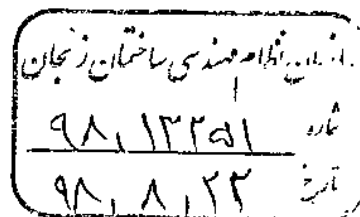 سازمان نظام مهندسی ساختمان زنجان
شماره ۹۸،۱۳۲۵۱
تاریخ ۹۸،۸،۲۳